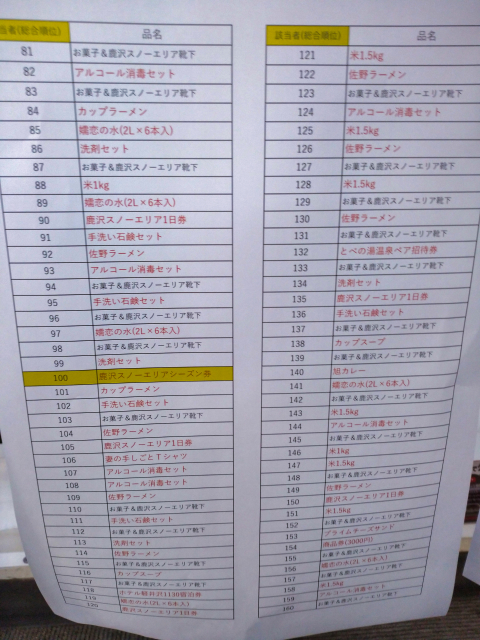 当者(総合順位) 品名
81 お菓子&鹿沢スノーエリア靴下
82 アルコール消毒セット
83 お菓子&鹿沢スノーエリア靴下
84 カップラーメン
85 嬬恋の水(2L×6本入)
86 洗剤セット
87 お菓子&鹿沢スノーエリア靴下
88 米1kg
89 嬬恋の水(2L×6本入)
90 鹿沢スノーエリア1日券
91 手洗い石鹸セット
92 佐野ラーメン
93 アルコール消毒セット
94 お菓子&鹿沢スノーエリア靴下
95 手洗い石鹸セット
96 お菓子&鹿沢スノーエリア靴下
97 嬬恋の水(2L×6本入)
98 お菓子&鹿沢スノーエリア靴下
99 洗剤セット
100 鹿沢スノーエリアシーズン券
101 カップラーメン
102 手洗い石鹸セット
103 お菓子&鹿沢スノーエリア靴下
104 佐野ラーメン
105 鹿沢スノーエリア1日券
106 妻の手しごとTシャツ
107 アルコール消毒セット
108 アルコール消毒セット
109 佐野ラーメン
110 お菓子&鹿沢スノーエリア靴下
111 手洗い石鹸セット
112 お菓子&鹿沢スノーエリア靴下
113 洗剤セット
114 佐野ラーメン
115 お菓子&鹿沢スノーエリア靴下
116 カップスープ
117 お菓子&鹿沢スノーエリア靴下
118 ホテル軽井沢1130宿泊券
119 嬬恋の水(2L×6本入)
120 鹿沢スノーエリア1日券
該当者(総合順位) 品名
121 米1.5kg
122 佐野ラーメン
123 お菓子&鹿沢スノーエリア靴下
124 アルコール消毒セット
125 米1.5kg
126 佐野ラーメン
127 お菓子&鹿沢スノーエリア靴下
128 米1.5kg
129 お菓子&鹿沢スノーエリア靴下
130 佐野ラーメン
131 お菓子&鹿沢スノーエリア靴下
132 とべの湯温泉ペア招待券
133 お菓子&鹿沢スノーエリア靴下
134 洗剤セット
135 鹿沢スノーエリア1日券
136 手洗い石鹸セット
137 お菓子&鹿沢スノーエリア靴下
138 カップスープ
139 お菓子&鹿沢スノーエリア靴下
140 旭カレー
141 嬬恋の水(2L×6本入)
142 お菓子&鹿沢スノーエリア靴下
143 米1.5kg
144 アルコール消毒セット
145 お菓子&鹿沢スノーエリア靴下
146 米1kg
147 米1.5kg
148 お菓子&鹿沢スノーエリア靴下
149 佐野ラーメン
150 鹿沢スノーエリア1日券
151 米1.5kg
152 お菓子&鹿沢スノーエリア靴下
153 プライムチーズサンド
154 商品券(3000円)
155 お菓子&鹿沢スノーエリア靴下
156 嬬恋の水(2L×6本入)
157 お菓子&鹿沢スノーエリア靴下
158 米1.5kg
159 アルコール消毒セット
160 お菓子&鹿沢スノーエリア靴下